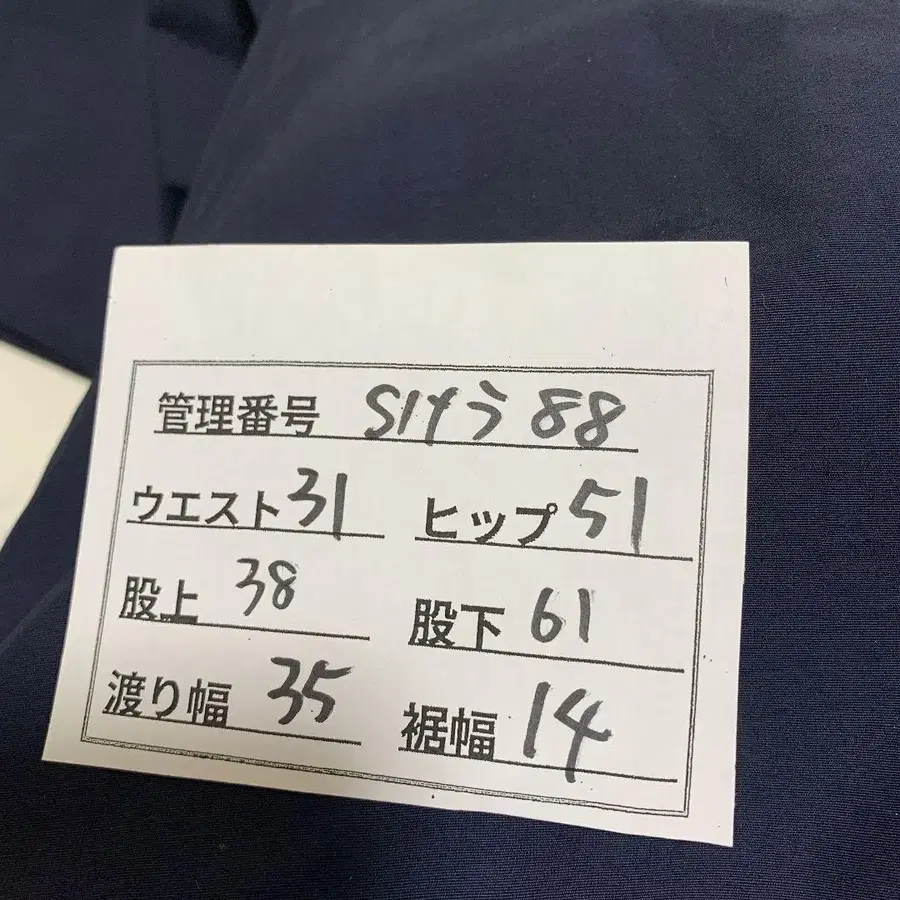 管理番号 S14う88
ウエスト31 ヒップ51
股上 38 股下 61
渡り幅 35 裾幅 14